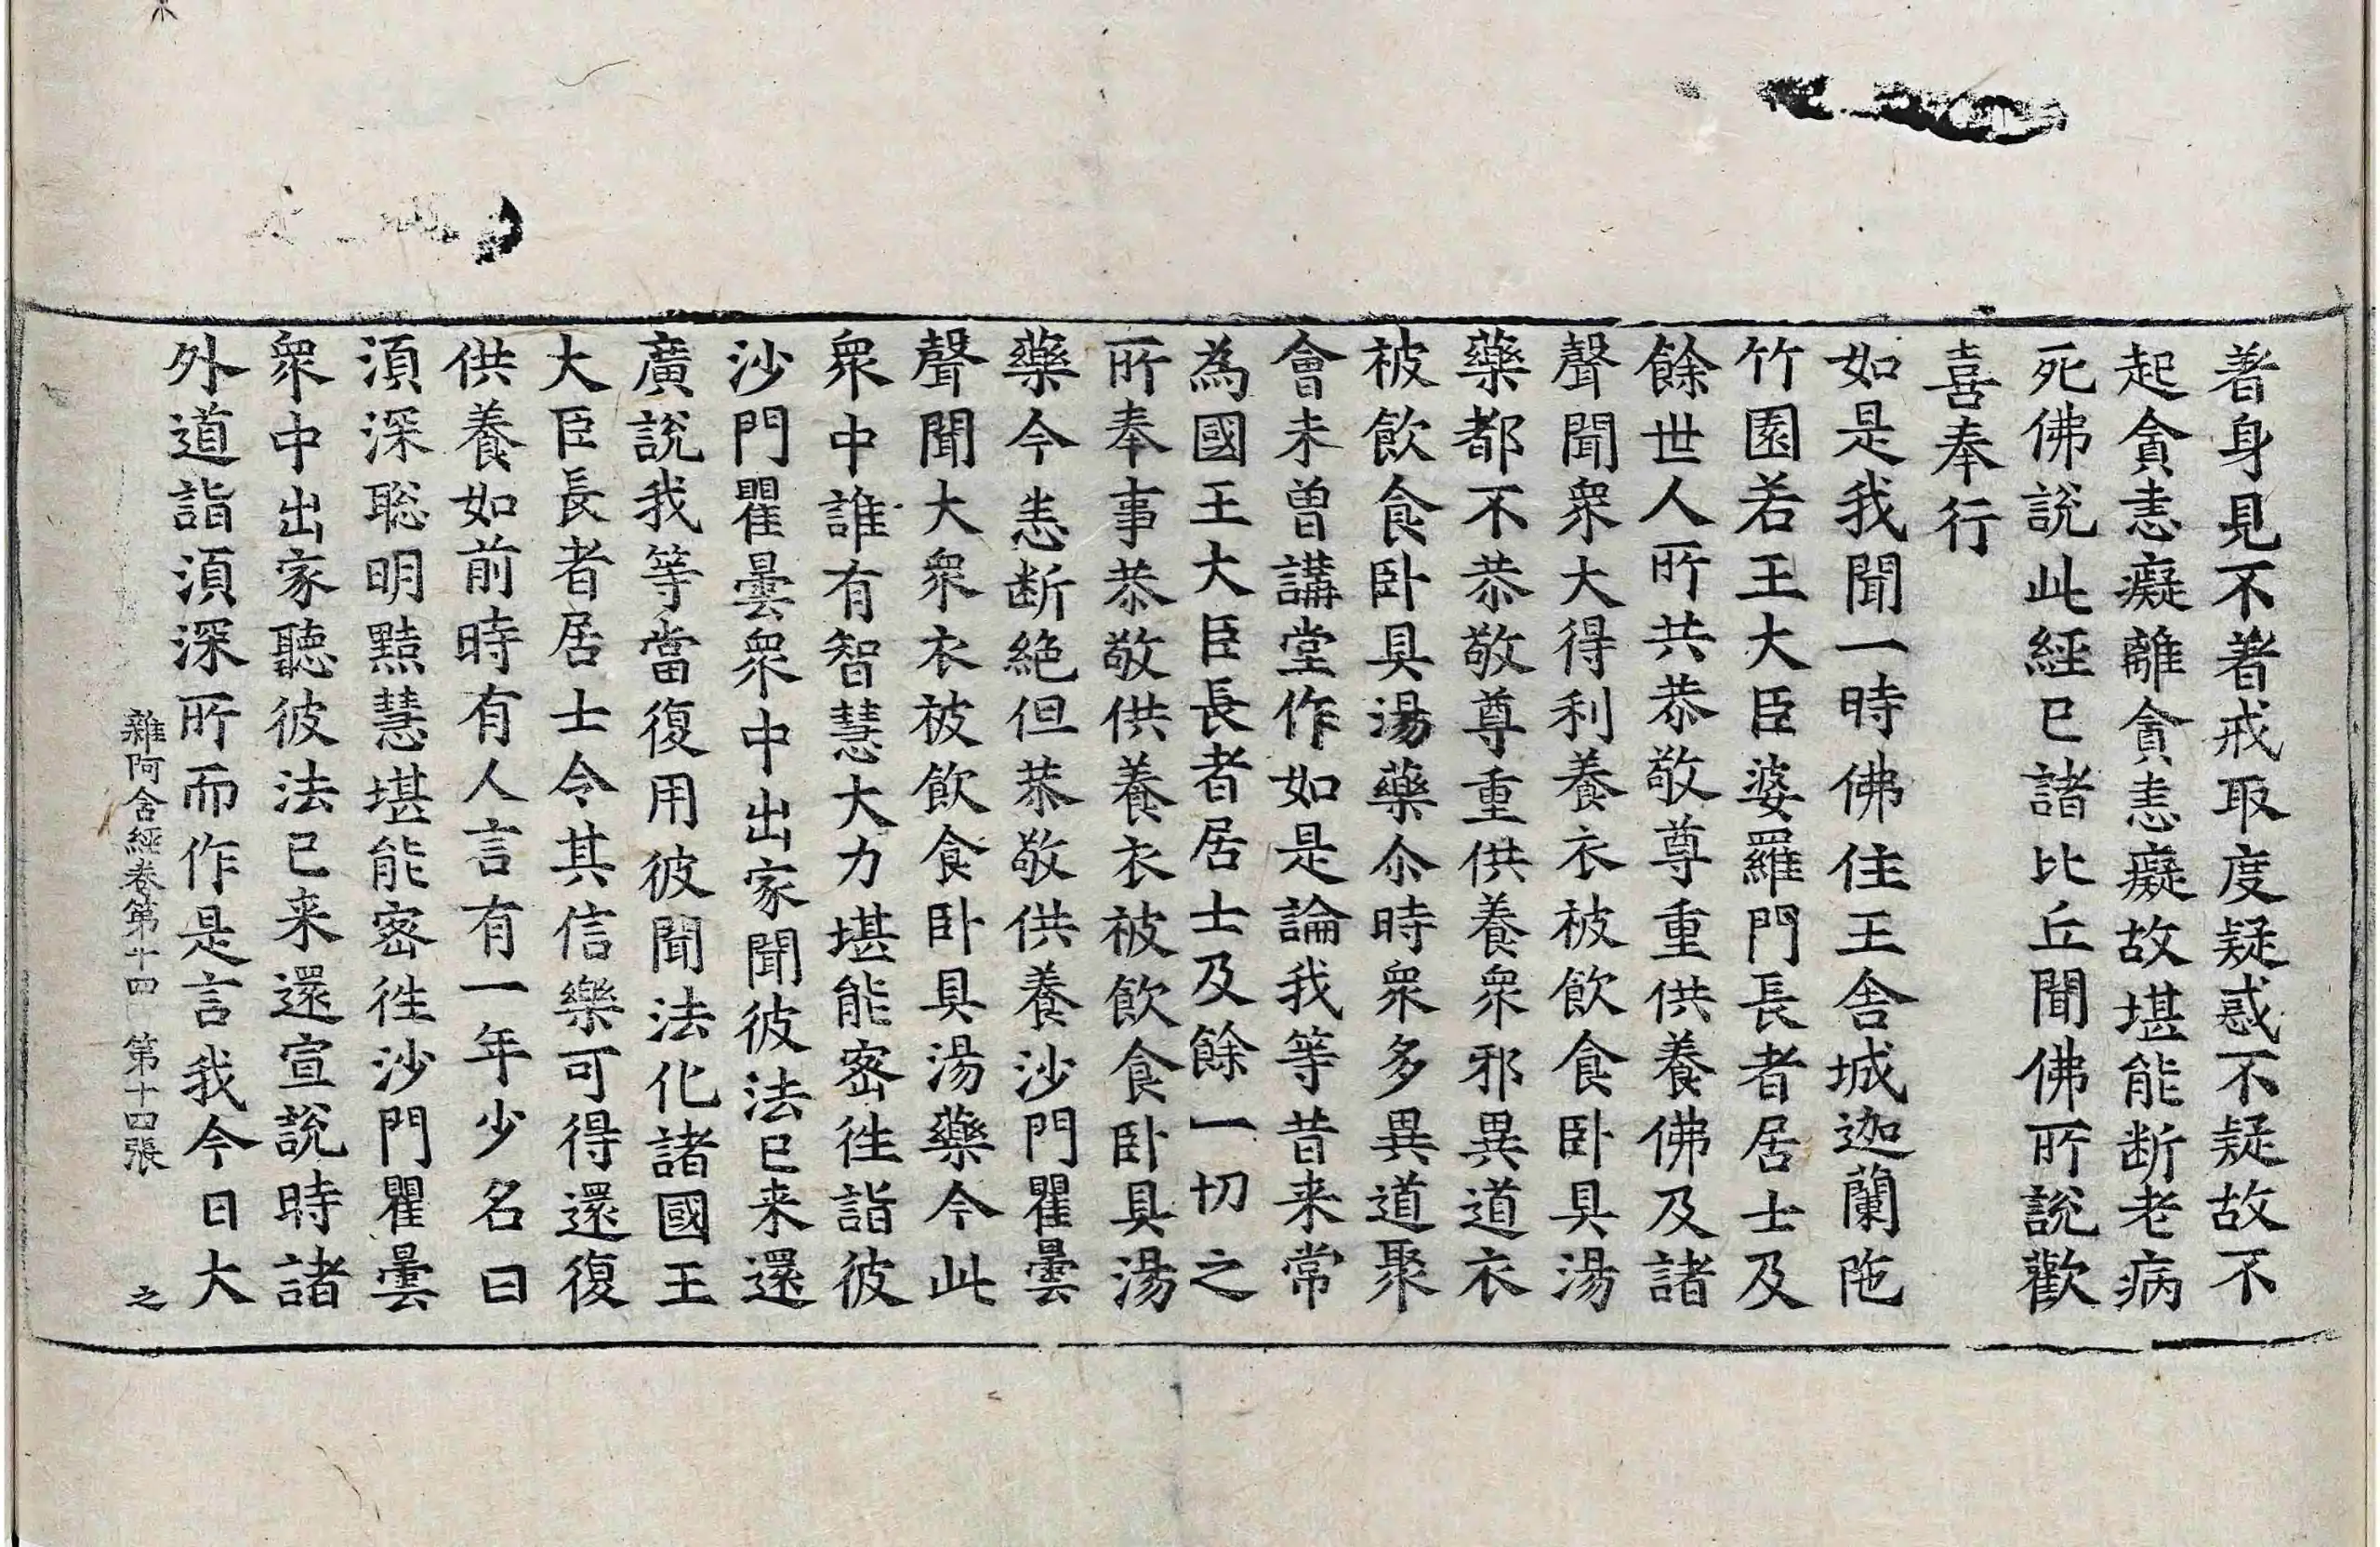 著身見不著戒取度疑惑不疑故不
起貪恚癡離貪恚癡故堪能断老病
死佛說此經已諸比丘聞佛所說歡
喜奉行
如是我聞一時佛住王舍城迦蘭陁
竹園若王大臣婆羅門長者居士及
餘世人所共恭敬尊重供養佛及諸
聲聞衆大得利養衣被飲食卧具湯
藥都不恭敬尊重供養衆邪異道衣
被飲食卧具湯藥尒時衆多異道聚
會未曽講堂作如是論我等昔来常
為國王大臣長者居士及餘一切之
所奉事恭敬供養衣被飲食卧具湯
藥今悉断絶但恭敬供養沙門瞿曇
聲聞大衆衣被飲食卧具湯藥今此
衆中誰有智慧大力堪能宻徃詣彼
沙門瞿曇衆中出家聞彼法已来還
廣說我等當復用彼聞法化諸國王
大臣長者居士令其信樂可得還復
供養如前時有人言有一年少名曰
湏深聡明黠慧堪能宻徃沙門瞿曇
衆中出家聽彼法已来還宣說時諸
外道詣湏深所而作是言我今日大
雜阿含經卷第十四 第十四張 之